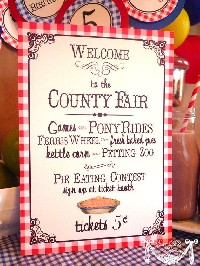 5
WELCOME
to the
COUNTY FAIR
GAMES PONY RIDES
FERRIS WHEEL fresh baked pies
kettle corn PETTING ZOO
PIE EATING CONTEST
sign up at ticket booth
tickets 5¢